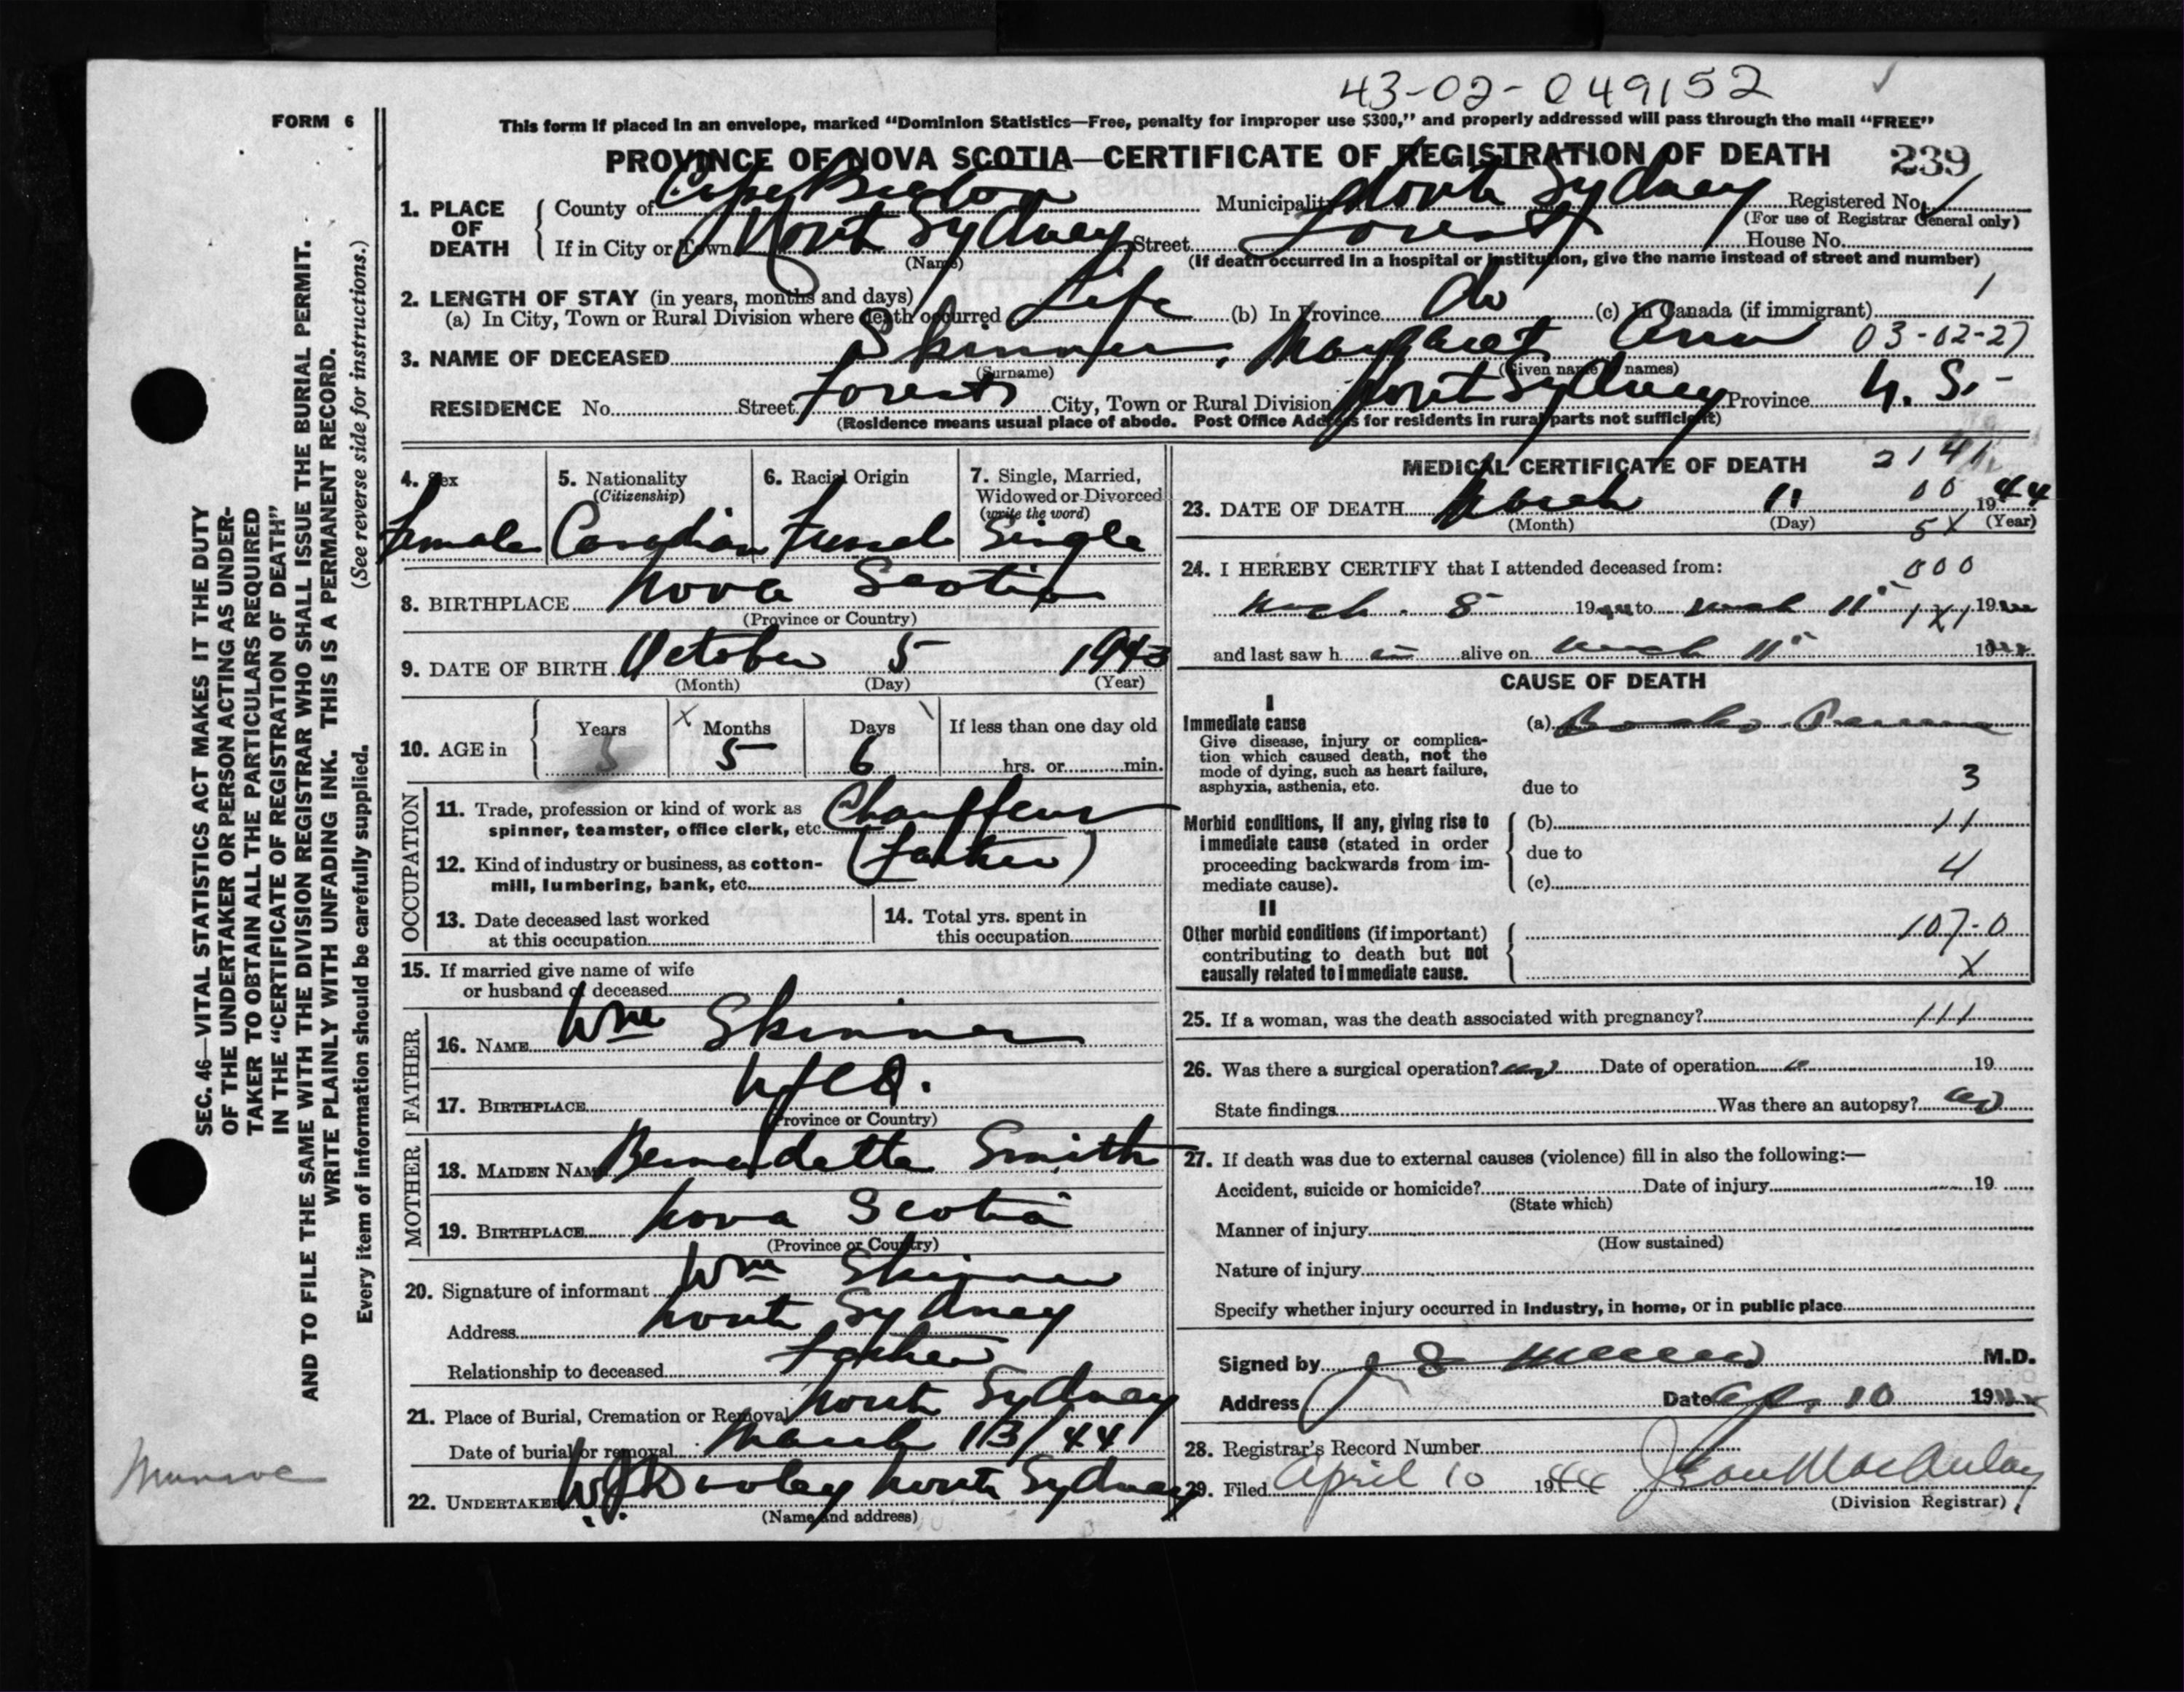 43-02-049152
FORM 6
This form if placed in an envelope, marked "Dominion Statistics—Free, penalty for improper use $300," and properly addressed will pass through the mail "FREE"
PROVINCE OF NOVA SCOTIA—CERTIFICATE OF REGISTRATION OF DEATH 239
1. PLACE OF DEATH
County of Cape Breton Municipality North Sydney Registered No. 1
(For use of Registrar General only)
If in City or Town North Sydney Street Forest House No.
(Name) (If death occurred in a hospital or institution, give the name instead of street and number)
2. LENGTH OF STAY (in years, months and days)
(a) In City, Town or Rural Division where death occurred Life (b) In Province do (c) In Canada (if immigrant) 1
3. NAME OF DECEASED Skinner, Margaret Ann 03-02-27
(Surname) (Given name or names)
RESIDENCE No. Street Forest City, Town or Rural Division North Sydney Province N. S.
(Residence means usual place of abode. Post Office Address for residents in rural parts not sufficient)
4. Sex
Female
5. Nationality
(Citizenship)
Canadian
6. Racial Origin
7. Single, Married,
Widowed or Divorced
(write the word)
Single
8. BIRTHPLACE Nova Scotia
(Province or Country)
9. DATE OF BIRTH October 5 1943
(Month) (Day) (Year)
10. AGE in
Years
5
x Months
5
Days
6
If less than one day old
hrs. or min.
OCCUPATION
11. Trade, profession or kind of work as
spinner, teamster, office clerk, etc. Chauffeur
12. Kind of industry or business, as cotton-
mill, lumbering, bank, etc. (Father)
13. Date deceased last worked
at this occupation
14. Total yrs. spent in
this occupation
15. If married give name of wife
or husband of deceased
FATHER
16. NAME Wm Skinner
17. BIRTHPLACE Nfld.
(Province or Country)
MOTHER
18. MAIDEN NAME Bernadette Smith
19. BIRTHPLACE Nova Scotia
(Province or Country)
20. Signature of informant Wm Skinner
Address North Sydney
Relationship to deceased Father
21. Place of Burial, Cremation or Removal North Sydney
Date of burial or removal March 13/44
22. UNDERTAKER W. J. Dooley North Sydney
(Name and address)
MEDICAL CERTIFICATE OF DEATH 2141
00
23. DATE OF DEATH March 11 1944
(Month) (Day) (Year)
5X
24. I HEREBY CERTIFY that I attended deceased from: 000
March 8 1944 to March 11 1944
1X1
and last saw h alive on March 11 1944
CAUSE OF DEATH
I
Immediate cause
Give disease, injury or complica-
tion which caused death, not the
mode of dying, such as heart failure,
asphyxia, asthenia, etc.
(a)
due to 3
Morbid conditions, if any, giving rise to
immediate cause (stated in order
proceeding backwards from im-
mediate cause).
(b) 11
due to
4
(c)
II
Other morbid conditions (if important)
contributing to death but not
causally related to immediate cause.
107-0
X
25. If a woman, was the death associated with pregnancy? 111
26. Was there a surgical operation? no Date of operation 19
State findings Was there an autopsy? no
27. If death was due to external causes (violence) fill in also the following:—
Accident, suicide or homicide? Date of injury 19
(State which)
Manner of injury
(How sustained)
Nature of injury
Specify whether injury occurred in industry, in home, or in public place
Signed by M.D.
Address Date Ap. 10 1944
28. Registrar's Record Number
29. Filed April 10 1944 Jean MacAulay
(Division Registrar)
SEC. 46—VITAL STATISTICS ACT MAKES IT THE DUTY
OF THE UNDERTAKER OR PERSON ACTING AS UNDER-
TAKER TO OBTAIN ALL THE PARTICULARS REQUIRED
IN THE "CERTIFICATE OF REGISTRATION OF DEATH"
AND TO FILE THE SAME WITH THE DIVISION REGISTRAR WHO SHALL ISSUE THE BURIAL PERMIT.
WRITE PLAINLY WITH UNFADING INK. THIS IS A PERMANENT RECORD.
(See reverse side for instructions.)
Every item of information should be carefully supplied.
Munroe